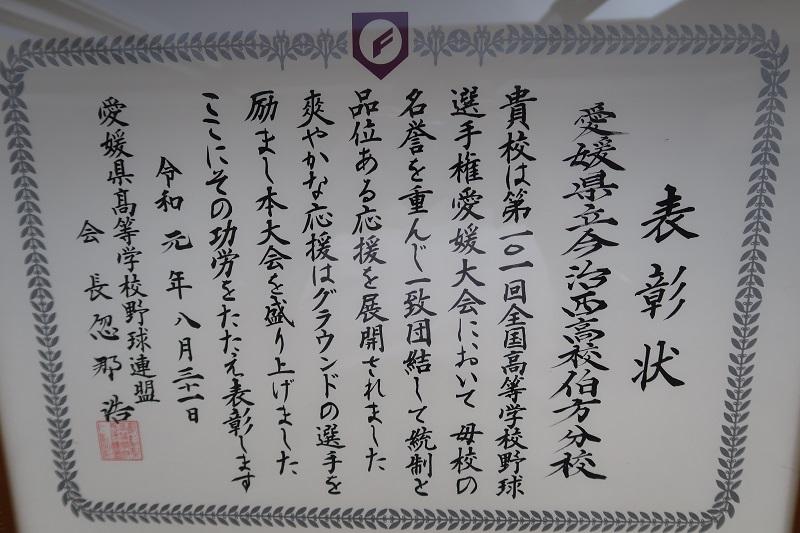 表彰状
愛媛県立今治西高校伯方分校
貴校は第一〇一回全国高等学校野球
選手権愛媛大会において母校の
名誉を重んじ一致団結して統制と
品位ある応援を展開されました
爽やかな応援はグラウンドの選手を
励まし本大会を盛り上げました
ここにその功労をたたえ表彰します
令和元年八月三十一日
愛媛県高等学校野球連盟
会長忽那浩
F